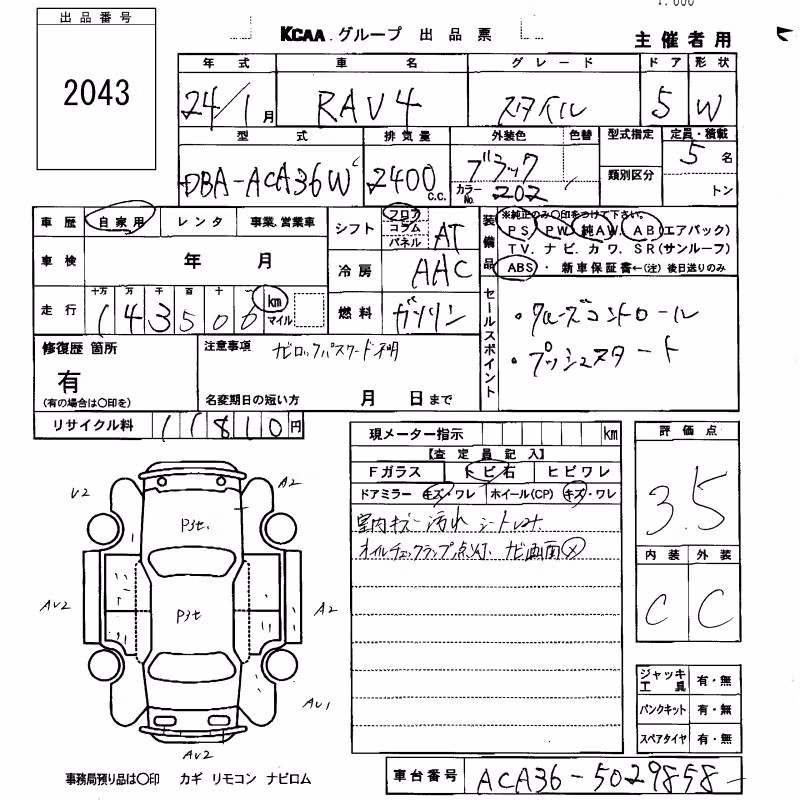 出品番号
2043
KCAA.グループ 出品票
主催者用
年式 車名 グレード ドア 形状
24/1月 RAV4 スタイル 5 W
型式 排気量 外装色 色替 型式指定 定員・積載
DBA-ACA36W 2400 c.c. ブラック カラーNo. 202 類別区分 5名
トン
車歴 自家用 レンタ 事業.営業車
シフト フロア コラム パネル AT
装備品 ※純正のみ〇印をつけて下さい。
PS. PW. 純AW. AB(エアバック)
TV. ナビ. カワ. SR(サンルーフ)
ABS・新車保証書←(注) 後日送りのみ
車検 年 月
冷房 AAC
走行 十万 万 千 百 十 一 km マイル
143506
燃料 ガソリン
セールスポイント
・クルーズコントロール
・プッシュスタート
修復歴 箇所
有
(有の場合は〇印を)
注意事項 ナビロックパスワード不明
名変期日の短い方 月 日まで
リサイクル料 11810円
現メーター指示 km
【査定員記入】
Fガラス トビ石 ヒビワレ
ドアミラー キズ・ワレ ホイール(CP) キズ・ワレ
室内キズ 汚れ
オイルチェックランプ点灯. ナビ画面ⓧ
評価点
3.5
内装 外装
C C
ジャッキ工具 有・無
パンクキット 有・無
スペアタイヤ 有・無
U2 A2
P3t.
AU2 A2
P3t
AU1
AU2
事務局預り品は〇印 カギ リモコン ナビロム
車台番号 ACA36-5029858